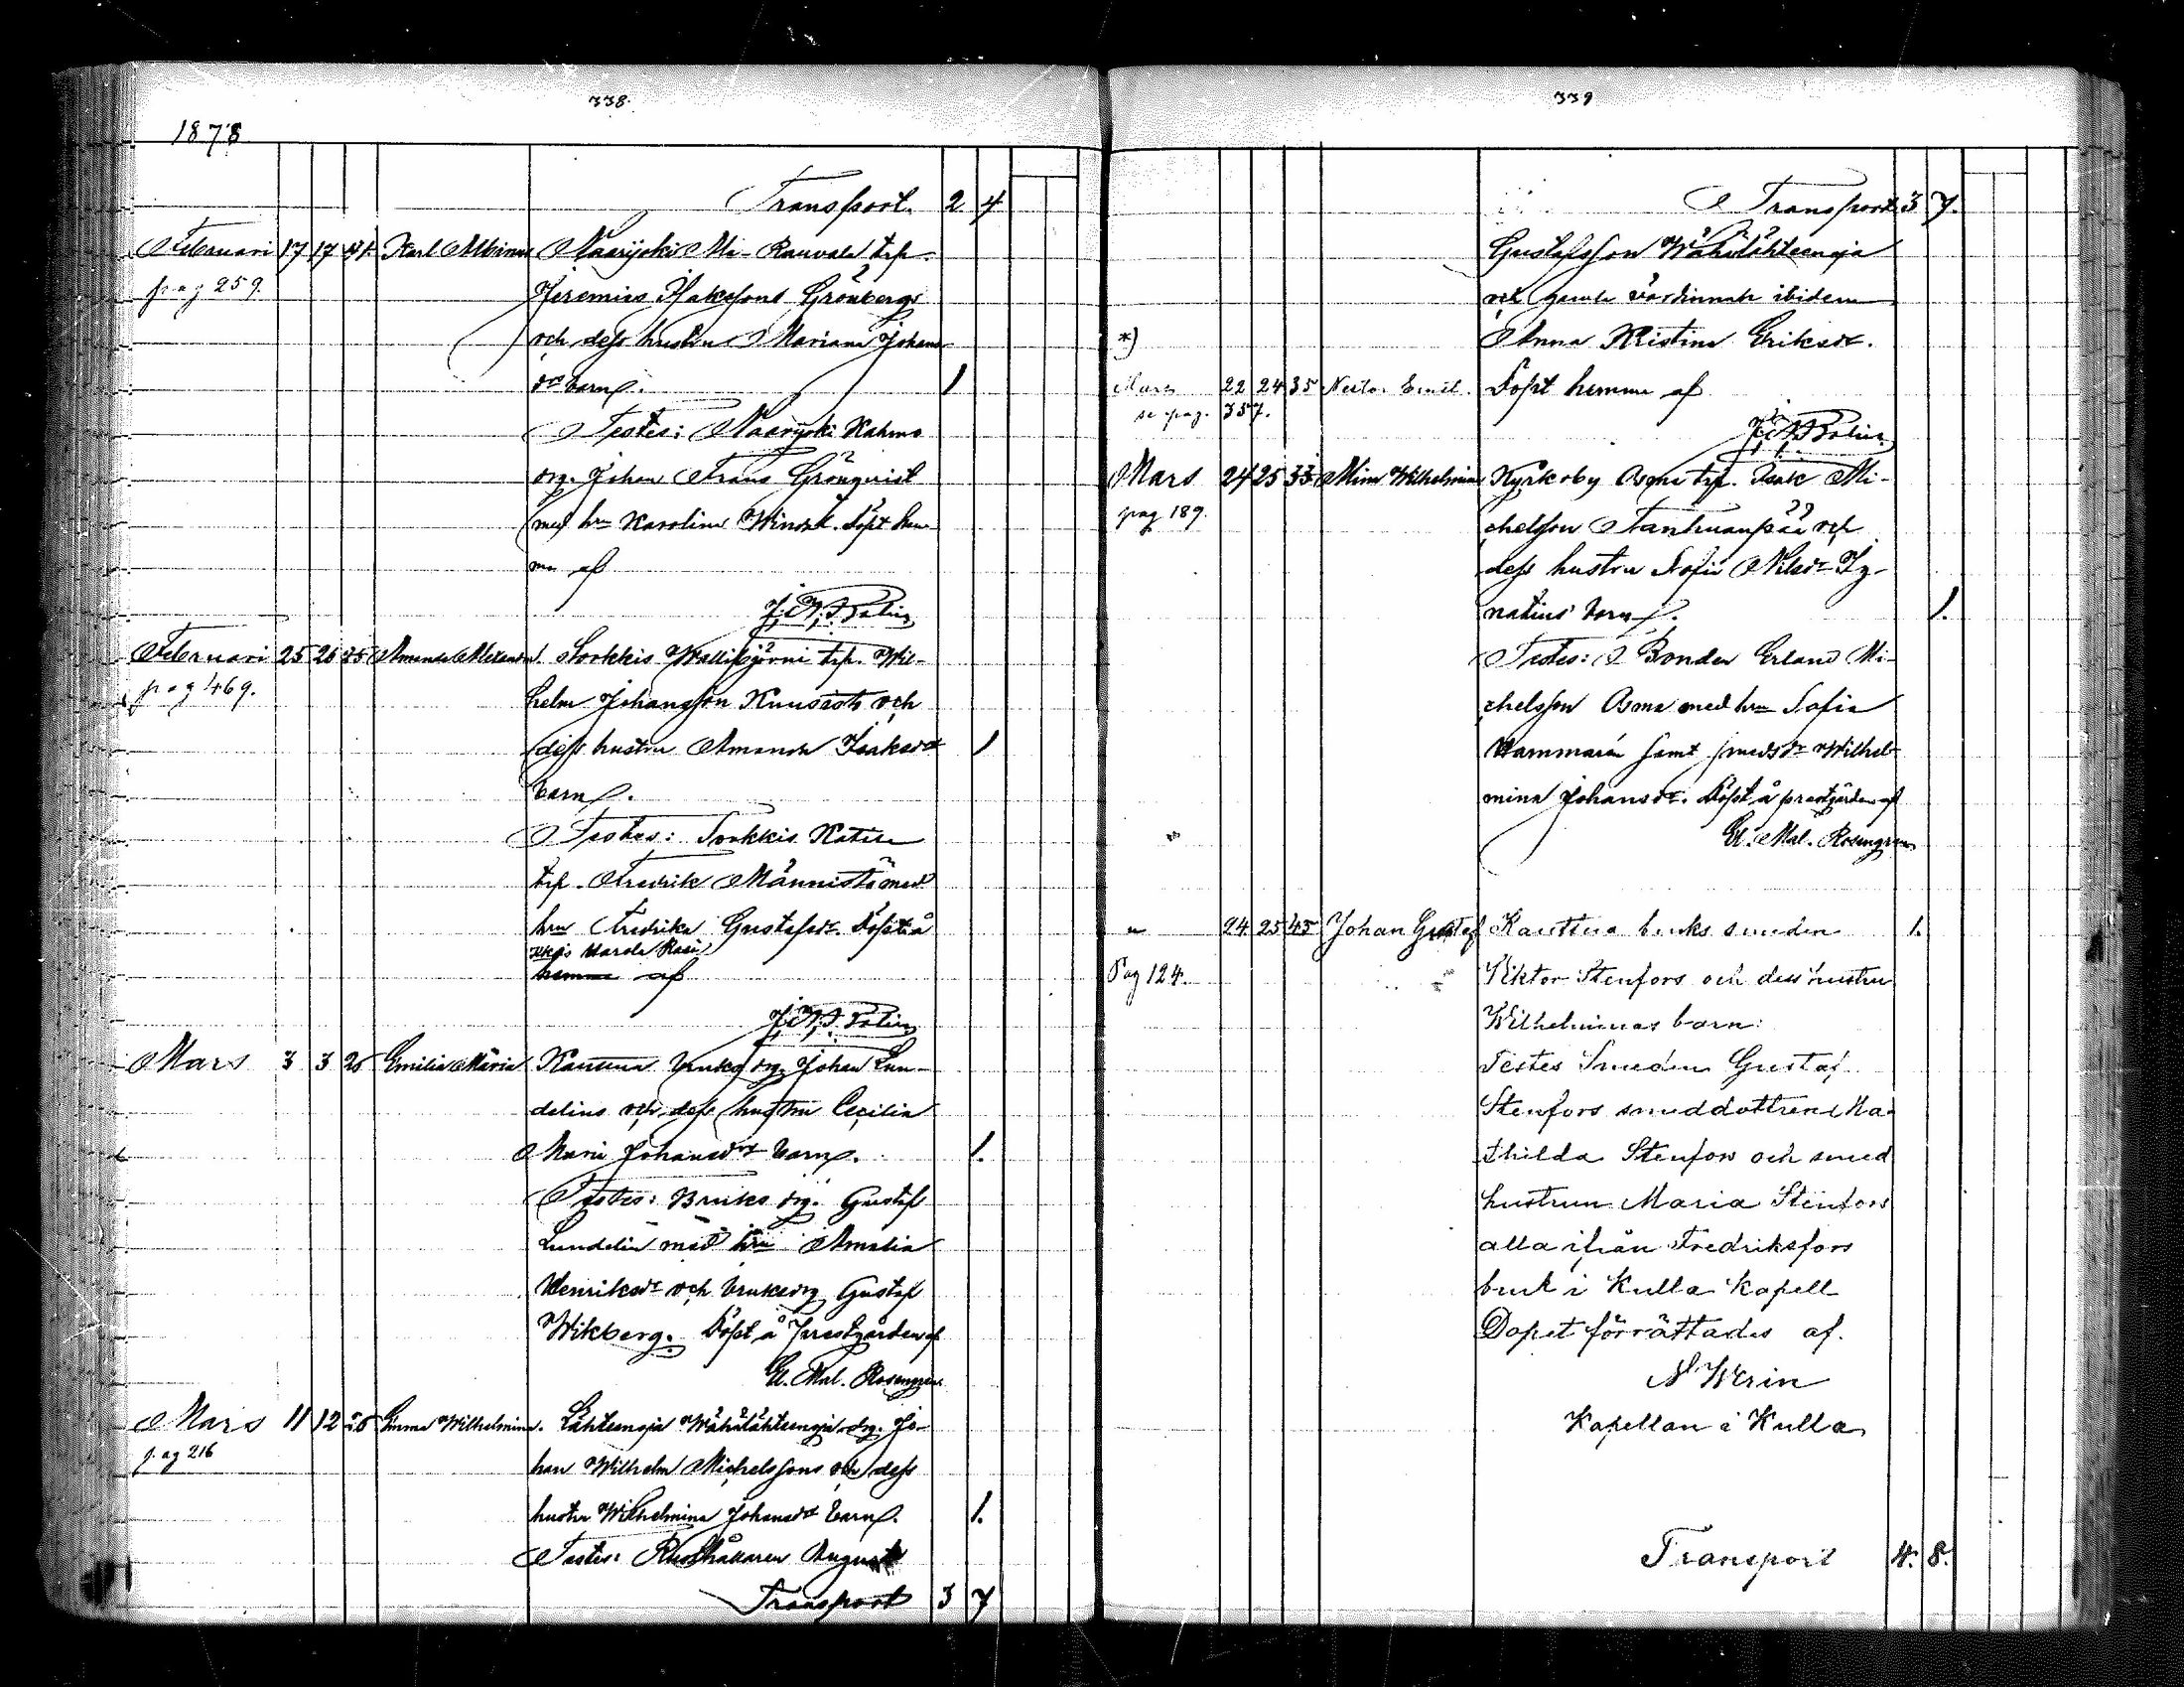 338.
1878.
Transport. 2 4
Februari 17 17 41. Karl Albinus Naarjoki Ali-Rauvala trp.
pag 259. Jeremias Isakssons Grönbergs
och dess hustru Mariana Johans
drs barn. 1
Testes: Naarjoki Hahmo
drg. Johan Frans Grönqvist
med hn Karolina Winqvt. Döpt hem-
ma af
J. N. Polin
Februari 25 26 25 Amanda Alexandra. Sorkkis Wallisjärvi trp. Wil-
pag 469. helm Johansson Knuusisto och
dess hustru Amanda Isaksdr 1
barn.
Testes: Sorkkis Katila
trp. Fredrik Männistö med
hru Fredrika Gustafsdr. Döpt å
Harola Rasi
hemma af
J. N. Polin
Mars 3 3 26 Emilia Maria Kauttua bruks drg. Johan Lun-
delins och dess hustru Cecilia
Maria Johansdrs barn. 1.
Testes: Bruks drg. Gustaf
Lundelin med hru Amalia
Henriksdr och bruksdrg Gustaf
Wikberg. Döpt å Prestgården af
El. Mal. Rosengren.
Mars 11 12 26 Emma Wilhelmina. Lähteenoja Wähälähteenoja drg. Jo-
pag 216 han Wilhelm Michelssons och dess
hustru Wilhelmina Johansdrs barn. 1.
Testes: Rusthållaren August
Transport 3 7
339
Transport 3 7.
Gustafsson Wähälähteenoja
och gamla värdinnan ibidem
*) Anna Kristina Eriksdr.
Mars 22 24 35 Nestor Emil. Döpt hemma af
se pag. 357.
J. N. Polin
Mars 24 25 33 Mina Wilhelmina Kyrkoby Asma trp. Isak Mi-
pag 189. chelsson Tanhuanpää och
dess hustru Sofia Nilsdr Ig-
natius' barn. 1.
Testes: Bonden Erland Mi-
chelsson Asma med hru Sofia
Hammarén samt smedsdr Wilhel-
mina Johansdr. Döpt å prestgården af
El. Mal. Rosengren
" 24 25 45 Johan Gustaf Kauttua bruks smeden 1.
Pag 124. Viktor Stenfors och dess hustru
Wilhelminas barn:
Testes Smeden Gustaf
Stenfors smeddottren Ma-
thilda Stenfors och smed
hustrun Maria Stenfors
alla ifrån Fredriksfors
bruk i Kulla Kapell
Dopet förrättades af.
N Werin
Kapellan i Kulla
Transport 4. 8.